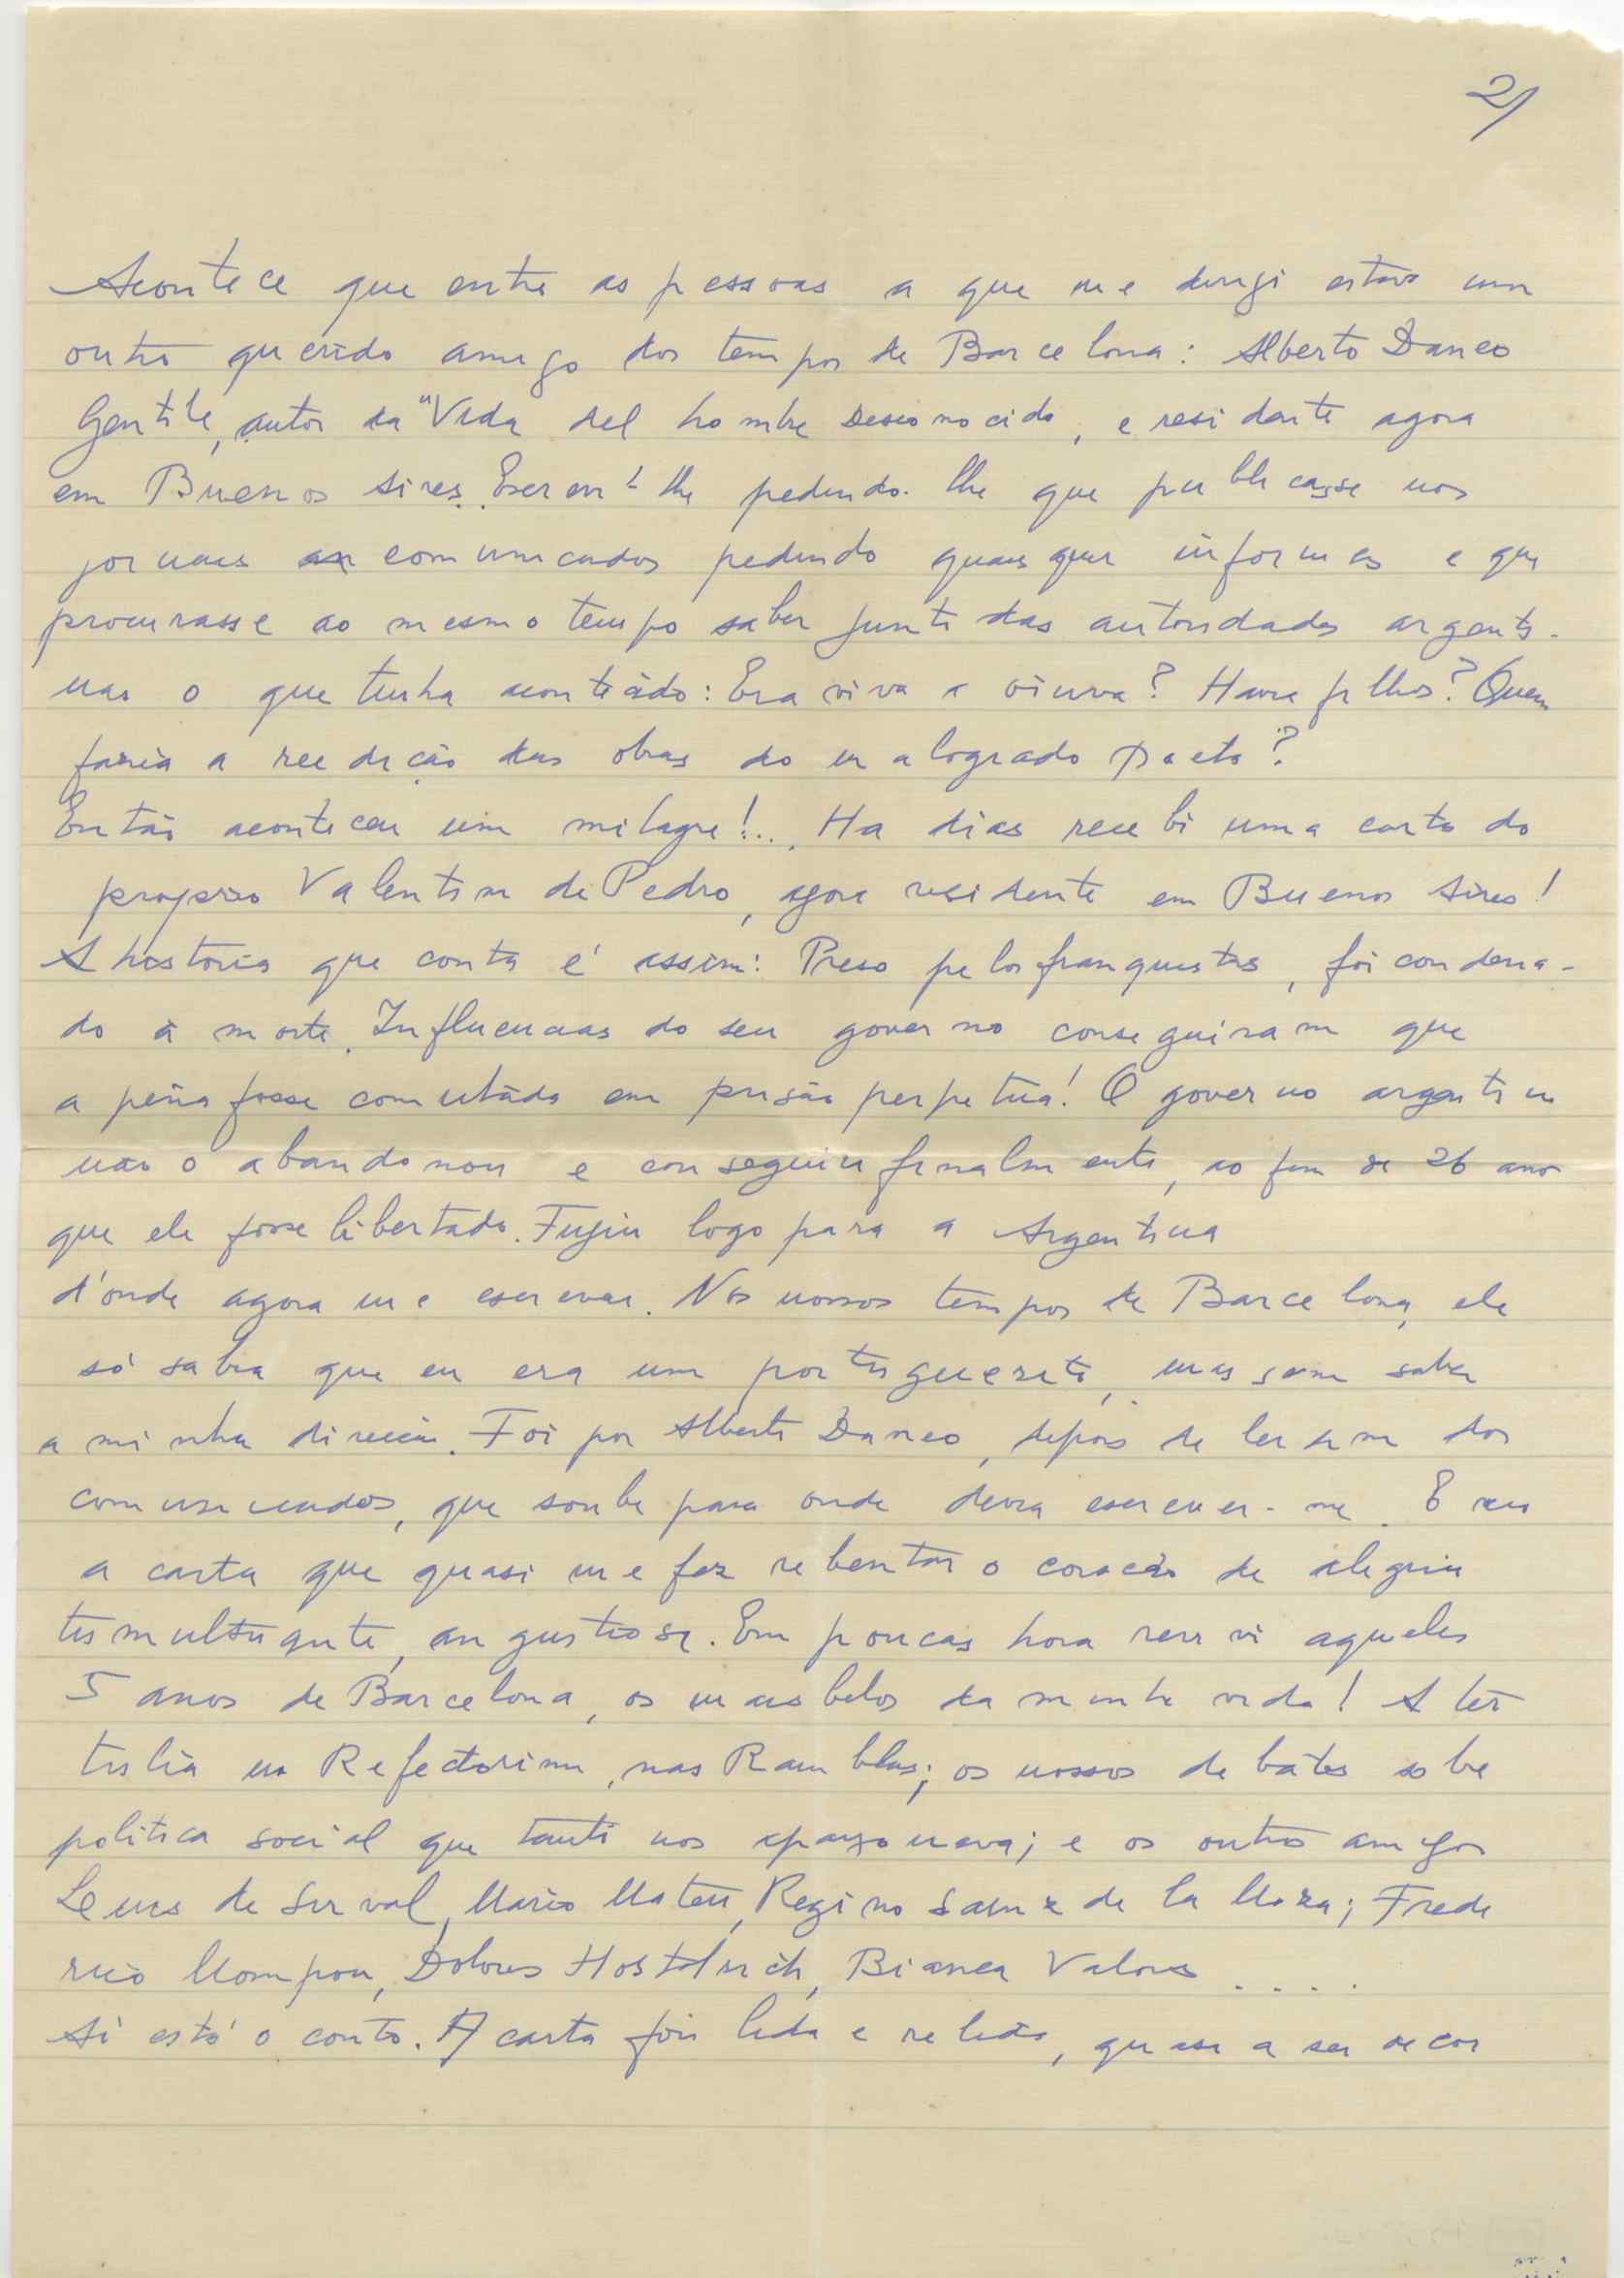 2/
Acontece que entre as pessoas a que me dirigi estava um
outro querido amigo dos tempos de Barcelona: Alberto Daneo
Gentile, autor da "Vida del hombre Desconocido, e residente agora
em Buenos Aires. Escrevi-lhe pedindo-lhe que publicasse nos
jornaes comunicados pedindo quaisquer informes e que
procurasse ao mesmo tempo saber junto das autoridades argenti-
nas o que tinha acontecido: Era viva a viuva? Havia filhos? Quem
faria a reedição das obras do malogrado poeta?
Então aconteceu um milagre!... Ha dias recebi uma carta do
proprio Valentim de Pedro, agora residente em Buenos Aires!
A historia que conta é assim: Preso pelos franquistas, foi condena-
do à morte. Influencias do seu governo conseguiram que
a pena fosse comutada em prisão perpetua! O governo argentino
não o abandonou e conseguiu finalmente, ao fim de 26 anos
que ele fosse libertado. Fugiu logo para a Argentina
d'onde agora me escreveu. Nos nossos tempos de Barcelona, ele
só sabia que eu era um portuguesito, mas sem saber
a minha direcção. Foi por Alberto Daneo, depois de ler um dos
comunicados, que soube para onde devia escrever-me. E veio
a carta que quasi me fez rebentar o coração de alegria
tumultuante, angustiosa. Em poucas hora revivi aqueles
5 anos de Barcelona, os mais belos da minha vida! A ter
tulia no Refectorium, nas Ramblas; os nossos debates sobre
politica social que tanto nos apaixonava; e os outros amigos
de Sirval, Mario Mateu, Regino Sainz de la Maza; Frede
rico Mompou, Dolores Bianca Valoris . . . .
Ai está o conto. A carta foi lida e relida, quase a sei de cor